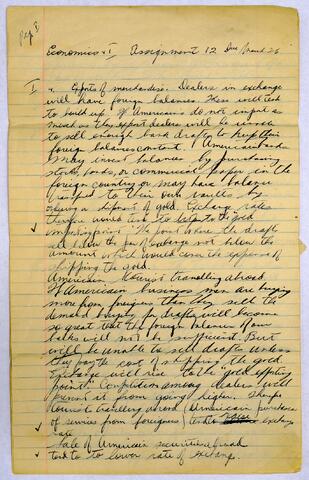 Pep 8
Economics I Assignment 12 Due March 26
I a. Exports of merchandise: Dealers in exchange
will have foreign balances. These will tend
to build up. If Americans do not import as
much as they export dealers will be unable
to sell enough bank drafts to keep their
foreign balances constant. American banks
may invest balances by purchasing
stocks, bonds, or commercial paper in the
foreign country or may have balance
shipped to their own vaults by
buying a shipment of gold. Exchange rates
therefore would tend to be to the "gold
importing point". The point where the drafts
sell below the par of exchange not below the
amount which would cover the expense of
shipping the gold.
American tourist travelling abroad
If American business men are buying
more from foreigners than they sell the
demand for drafts will become
so great that the foreign balances of our
banks will not be sufficient. Banks
will be unable to sell drafts unless
they pay the cost of shipping the gold.
Exchange will rise to the "gold exporting
point". Competition among dealers will
prevent it from going higher. Therefore
tourist travelling abroad (American purchase
of services from foreigners) tends to raise exchange
rate
Sale of American securities abroad
tend to lower rate of exchange.